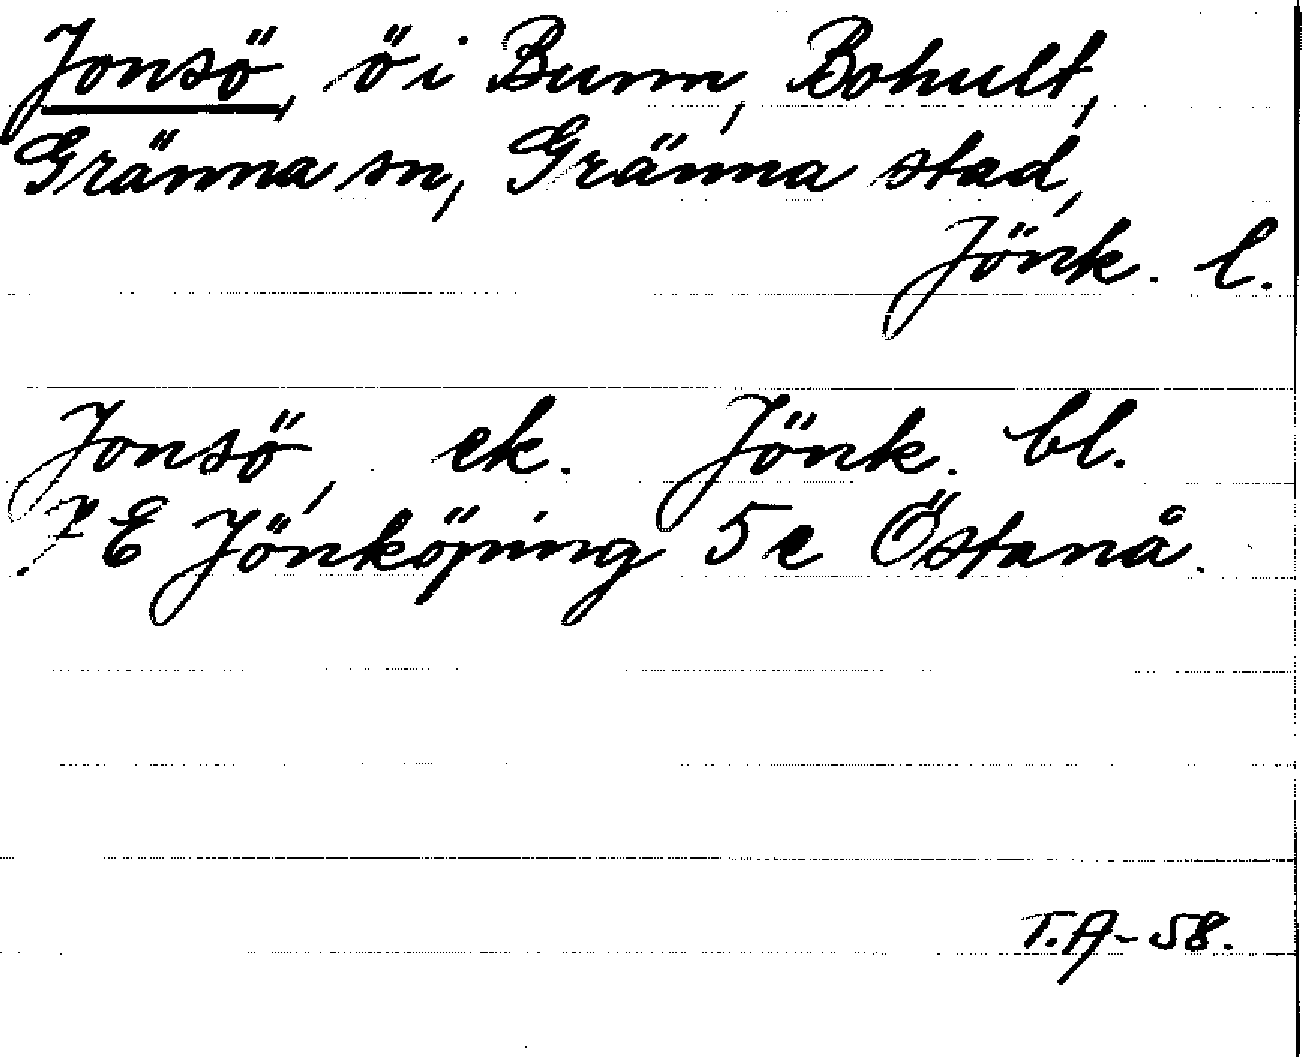 Jonsö, ö i Bunn, Bohult,
Gränna sn, Gränna stad,
Jönk. l.
Jonsö, ek. Jönk. bl.
7 E Jönköping 5 e Östanå.
T.A-58.